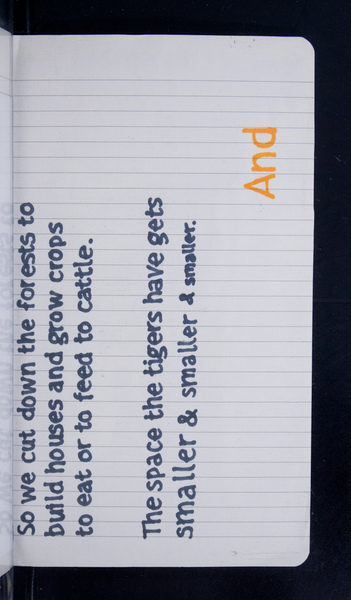 So we cut down the forests to
build houses and grow crops
to eat or to feed to cattle.
The space the tigers have gets
smaller & smaller & smaller.
And